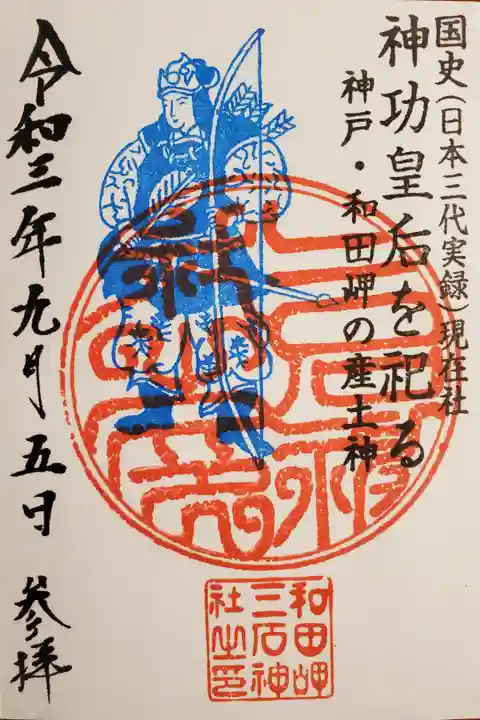 国史(日本三代実録)現在社
神功皇后を祀る
神戸・和田岬の産土神
令和三年九月五日 参拝
和田岬
三石神
社之印